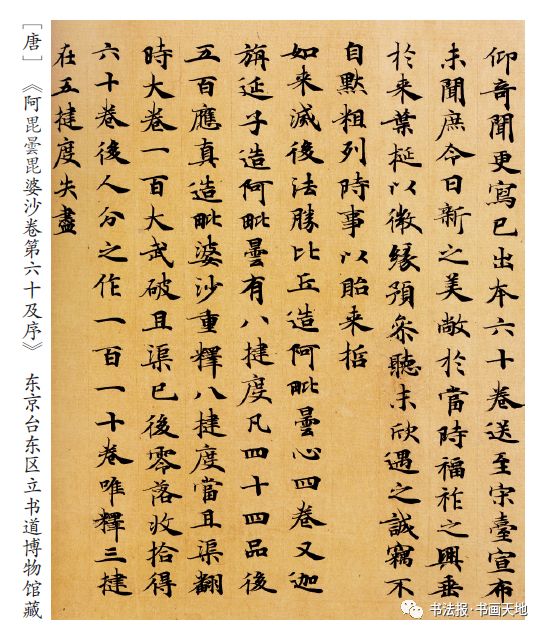 仰奇聞更寫已出本六十卷送至宗臺宣布
未聞庶令日新之美敞於當時福祚之興垂
於來葉梃以微緣預參聽末欣遇之誠竊不
自默粗列時事以貽来哲
如来滅後法勝比丘造阿毗曇心四卷又迦
旃延子造阿毗曇有八揵度凡四十四品後
五百應真造毗婆沙重釋八揵度當且渠翻
時大卷一百大武破且渠已後零落收拾得
六十卷後人分之作一百一十卷唯釋三揵
在五揵度失盡
[唐] 《阿毘曇毘婆沙卷第六十及序》 东京台东区立书道博物馆藏
书法报·书画天地